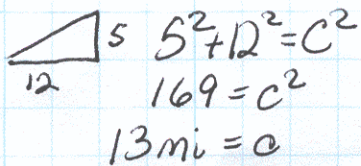 5 5²+12²=C²
12
169=c²
13mi=c